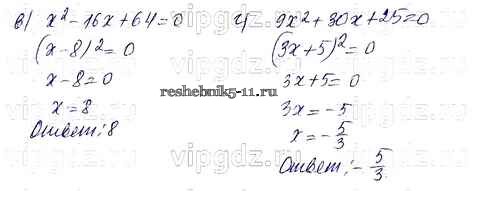 в) x² - 16x + 64 = 0
(x - 8)² = 0
x - 8 = 0
x = 8
Ответ: 8
г) 9x² + 30x + 25 = 0
(3x + 5)² = 0
3x + 5 = 0
3x = -5
x = -5/3
Ответ: -5/3
reshebnik5-11.ru
vipgdz.ru
vipgdz.ru
vipgdz.ru
vipgdz.ru